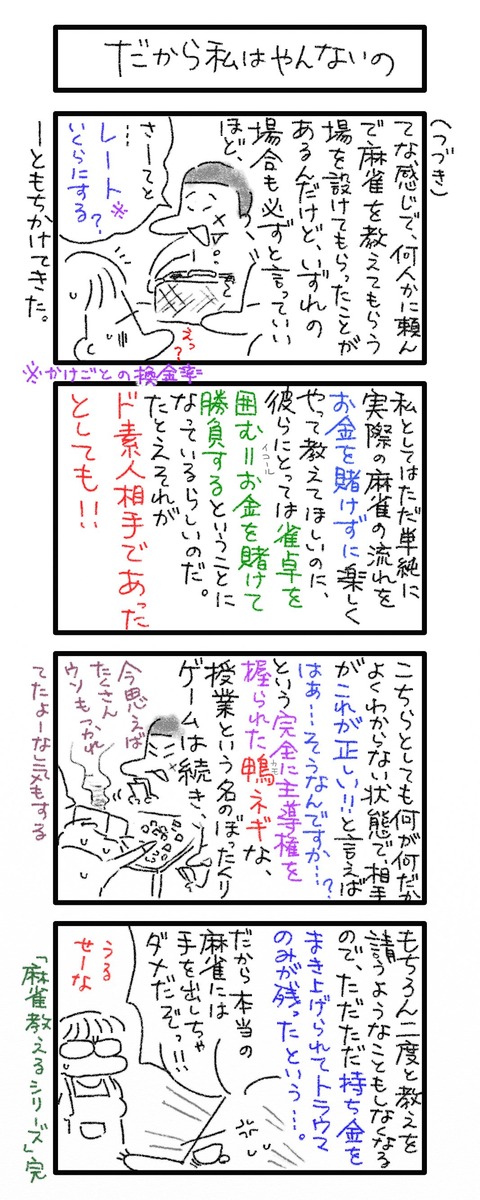 だから私はやんないの
(つづき)
てな感じで、何人かに頼ん
で麻雀を教えてもらう
場を設けてもらったことが
あるんだけど、いずれの
場合も必ずと言っていい
ほど、
さーてと
…
レート※
いくらにする?
ーともちかけてきた。
えっ?
※かけごとの換金率
私としてはただ単純に
実際の麻雀の流れを
お金を賭けずに楽しく
やって教えてほしいのに、
彼らにとっては雀卓を
囲む=お金を賭けて
イコール
勝負するということに
なっているらしいのだ。
たとえそれが
ド素人相手であった
としても!!
こちらとしても何が何だか
よくわからない状態で、相手
がこれが正しい!!と言えば
はぁ…そうなんですか…?
という完全に主導権を
握られた鴨ネギな、
カモ
授業という名のぼったくり
ゲームは続き、
今思えば
たくさん
ウソもつかれ
てたよーな気もする
もちろん二度と教えを
請うようなこともしなくなる
ので、ただただ持ち金を
まき上げられてトラウマ
のみが残ったという…。
だから本当の
麻雀には
手を出しちゃ
ダメだぞっ!!
うる
せーな
「麻雀教えるシリーズ」完